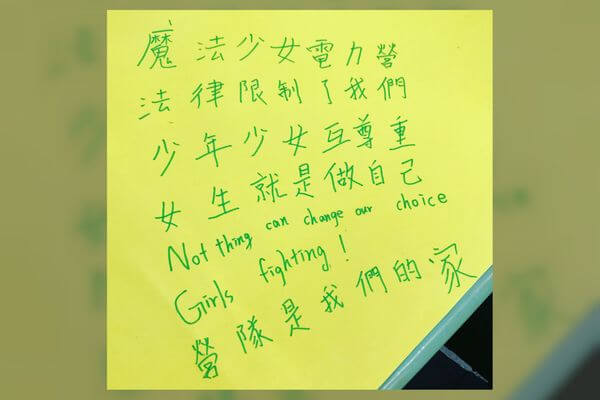 魔法少女電力營
法律限制了我們
少年少女互尊重
女生就是做自己
Not thing can change our choice
Girls fighting!
營隊是我們的家